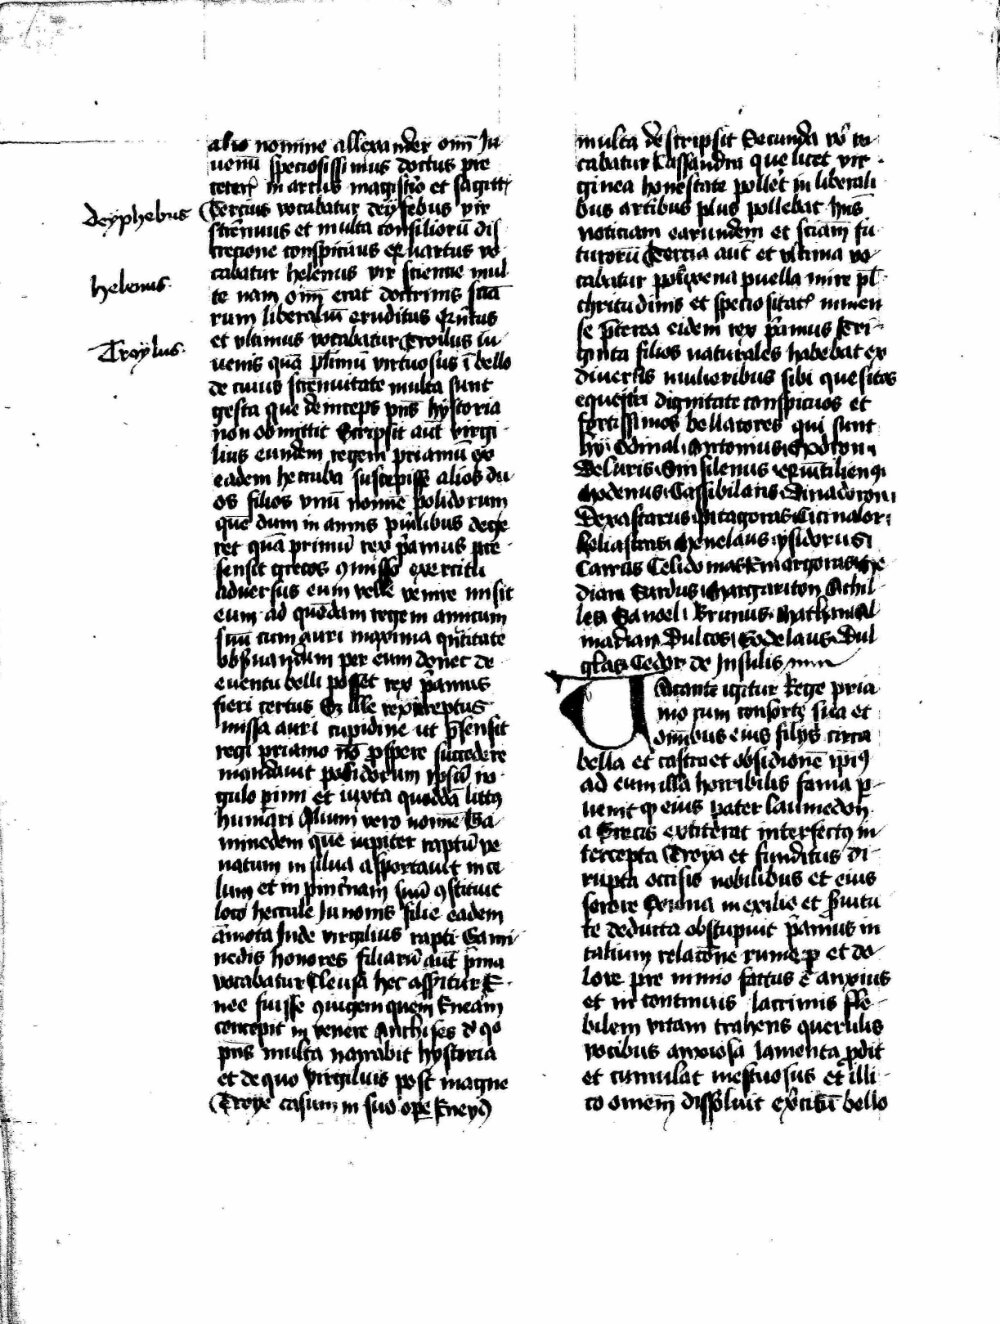 Deyphebus
helenus
Troylus
alio nomine allexander om̄ Ju
uenū speciosissimus doctus pre
teter in artus magistro et sagitt
Tercius vocabatur deyfebus vir
strēnuus et multa consiliorū dis
crecione conspicuus Quartus vo
cabatur helenus vir sciencie mul
te nam om̄ erat doctrinis sciā
rum liberaliū eruditus Quītus
et vltimus vocabatur Troilus iu
uenis quā plīmū virtuosus ī bello
de cuius strēnuitate multa sunt
gesta que deinceps pn̄s hystoria
non obmittit Scripsit aut̄ virgi
lius eundem regem priamū ex
eadem heccuba suscepisse alios du
os filios vnū nomīe polidorum
quē dum in annis puīlibus dege
ret quā primū rex p̄amus pre
sensit grecos ꝯmisso exercitu
aduersus eum velle venire misit
eum ad quēdam regem amicum
suū cum auri maxima qn̄titate
obseruandum per eum donec de
euentu belli posset rex p̄amus
fieri certus Et ille rex ireptus
missa auri cupidine ut p̄sensit
regi priamo nō ꝓspere succedere
mandauit polidorum
gulo perimi et iuxta quoddā littꝰ
humari Alium vero nomīe Ga
nimedem quē iupiter raptū ve
natum in silua asportauit in ce
lum et in pincernam suū ꝯstituit
loco heccule Junonis filie eadem
āmota Inde virgilius rapti Gani
medis honores filiarū aut̄ p̄ma
vocabatur Cleusa hec assitur E
nee fuisse ꝯiugem quem Eneam
concepit in venere Anchises de quo
pn̄s multa narrabit hystoria
et de quo virgilius post magne
Troye casum in suo oꝑe Eneydꝰ
multa descripsit Secunda vo vo
cabatur Cassandra que licet vir
ginea honestate polleret in liberali
bus artibus plus pollebat hn̄s
noticiam earundem et sciam fu
turorū Tercia aut̄ et vltima vo
cabatur polixena puella mire pul
chritudinis et speciositatis immen
se p̄terea eidem rex p̄amus tri
ginta filios naturales habebat ex
diuersis mulieribus sibi quesitos
equestri dignitate conspicuos et
fortissimos bellatores qui sunt
hij Odinal Antonius Exdron
Deluris Sinsilenus Quītilienꝰ
Modenus Cassibilans Dinadoron
Dexastarus pitagoras Cicinalor
heliastras Menelaus ysidorus
Carras Celidomas Emargoras Me
dian Sardus Margariton Achil
les Fanoel Brunus Mathinal
madian Dulcos Godelaus Dul
glas Cedor de Insulis
Vacante igitur Rege pria
mo cum consorte sua et
omībus eius filijs circa
bella et castra et obsidionē ipiꝰ
ad eum illa horribilis fama ꝑ
uenit ꝙ eius pater laumedon
a Grecis extiterat interfectꝰ in
tercepta Troya et funditus di
rupta occisis nobilibus et eius
sorore Exiona in exilio et s̄uitu
te deducta obstupuit p̄amus in
talium relacōne rumoꝝ et do
lore pre nimio factus ē anxius
et in continuis lacrimis fle
bilem vitam trahens querulis
vocibus anxiosa lamenta ꝓdit
et cumulat mestuosus et illi
co omem̄ dissoluit ex̄citū bello